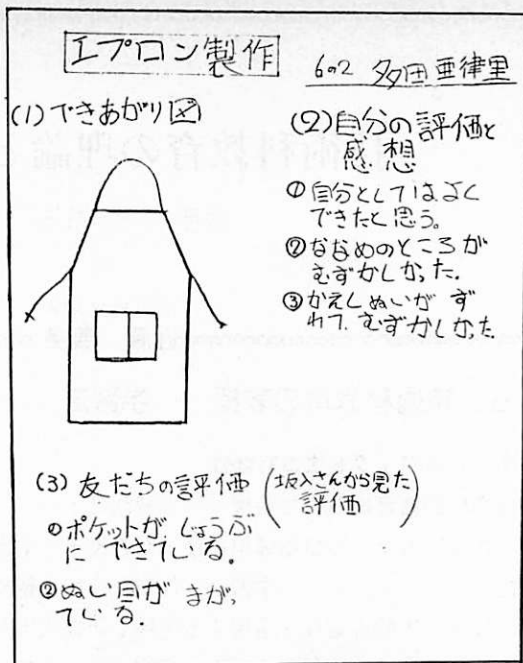 エプロン製作
6の2 多田亜律里
(1)できあがり図
(2)自分の評価と
感想
①自分としてはよく
できたと思う。
②ななめのところが
むずかしかった。
③かえしぬいが ず
れて むずかしかった
(3)友だちの評価 (坂入さんから見た
評価)
①ポケットが じょうぶ
に できている。
②ぬい目が まがっ
ている。